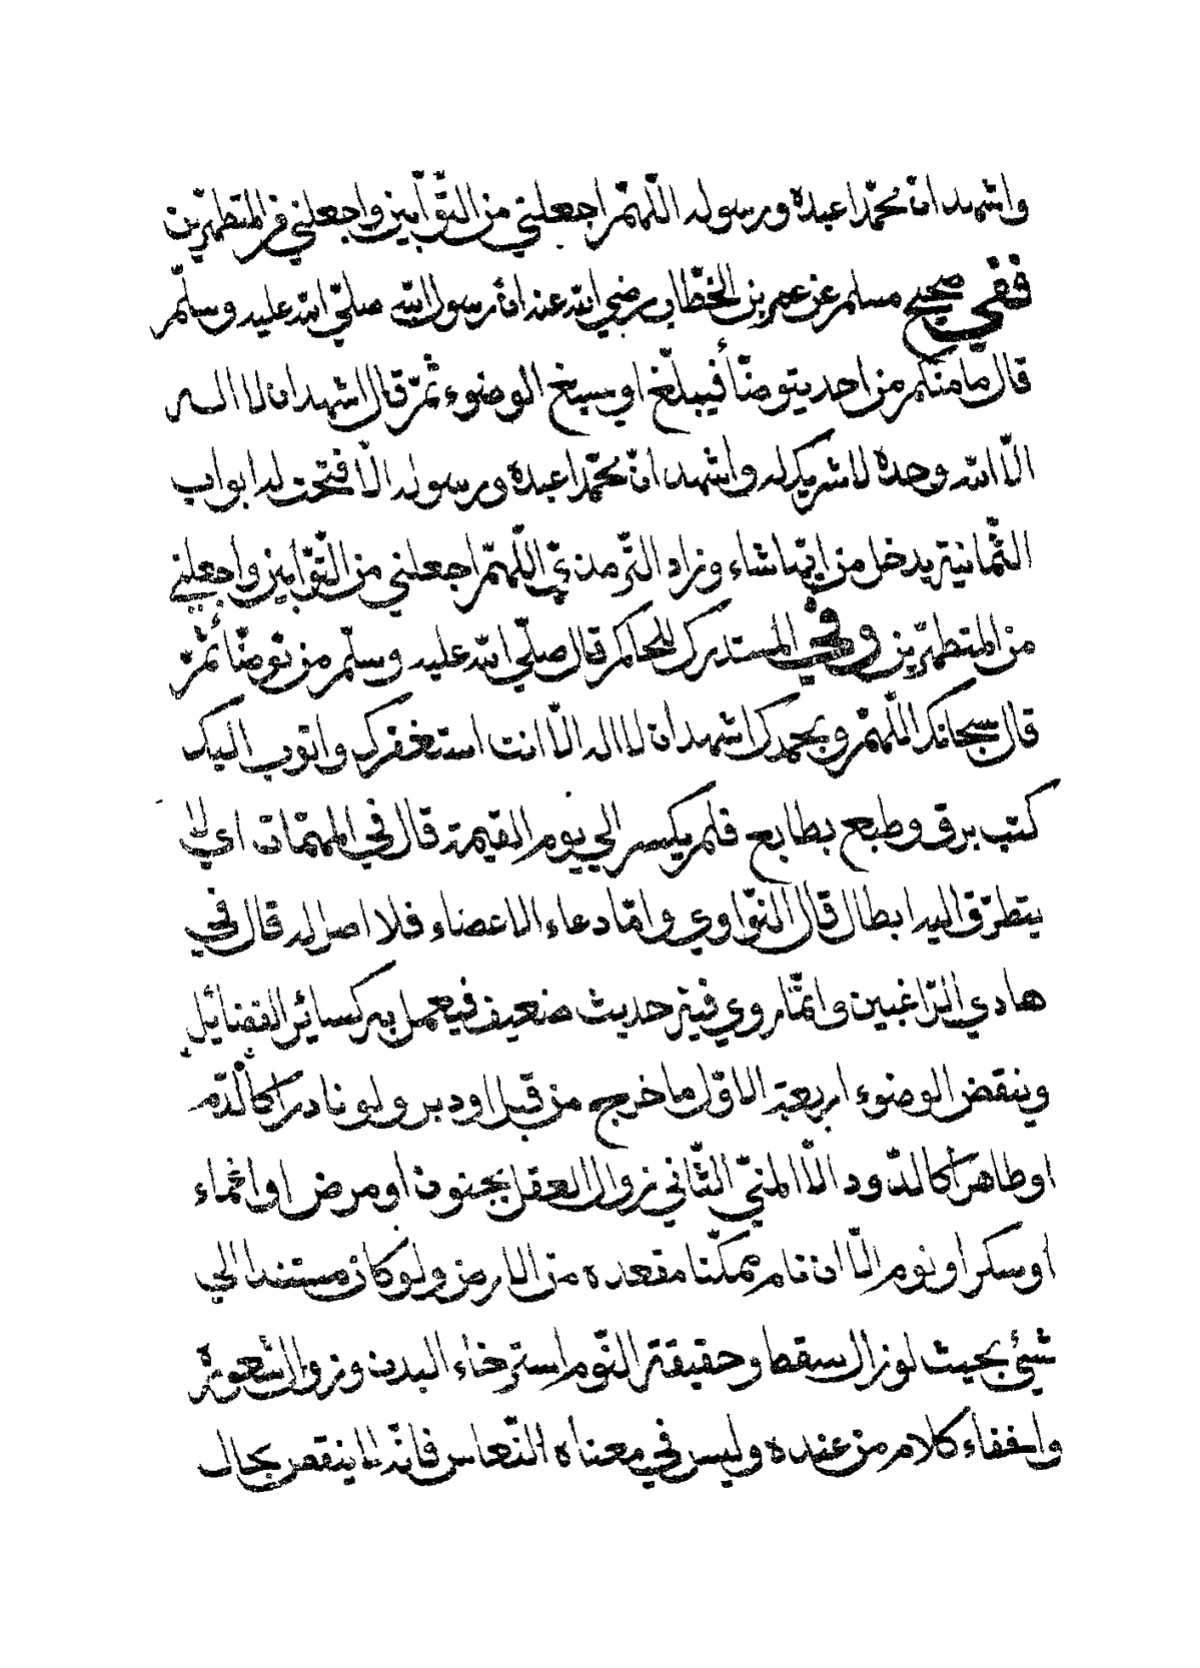 واشهد ان محمّدا عبده ورسوله اللّهمّ اجعلني من التّوّابين واجعلني من المتطهّرين
ففي صحيح مسلم عن عمر بن الخطّاب رضي الله عنه ان رسول الله صلّي الله عليه وسلّم
قال ما منكم من احد يتوضّأ فيبلّغ او يسبغ الوضوء ثمّ قال اشهد ان لا اله
الّا الله وحده لا شريك له واشهد انّ محمّدا عبده ورسوله الّا فتحت له ابواب
الثّمانية يدخل من ايّها شاء وزاد التّرمذيّ اللّهمّ اجعلني من التّوّابين واجعلني
من المتطهّرين وفي المستدرك للحاكم قال صلّي الله عليه وسلّم من توضّأ ثمّ
قال سبحانك اللّهمّ وبحمدك اشهد ان لا اله الّا انت استغفرك واتوب اليك
كتب برق وطبع بطابع فلم يكسر الي يوم القيمة قال في المهمّات اي لا
يتطرّق اليه ابطال قال النّواوي وامّا دعاء الاعضاء فلا اصل له قال في
هادي الرّاغبين وانّما روي فيه حديث ضعيف فيعمل به كسائر الفضائل
وينقض الوضوء اربعة الاوّل ما خرج من قبل او دبر ولو نادرا كالدّم
او طاهرا كالدّود الّا المنيّ الثّاني زوال العقل بجنون او مرض او اغماء
او سكر او نوم الّا ان نام ممكّنا مقعده من الارض ولو كان مستندا الي
شئ بحيث لو زال سقط وحقيقة النّوم استرخاء البدن وزوال شعوره
واخفاء كلام من عنده وليس في معناه النّعاس فانّه لا ينقض بحال